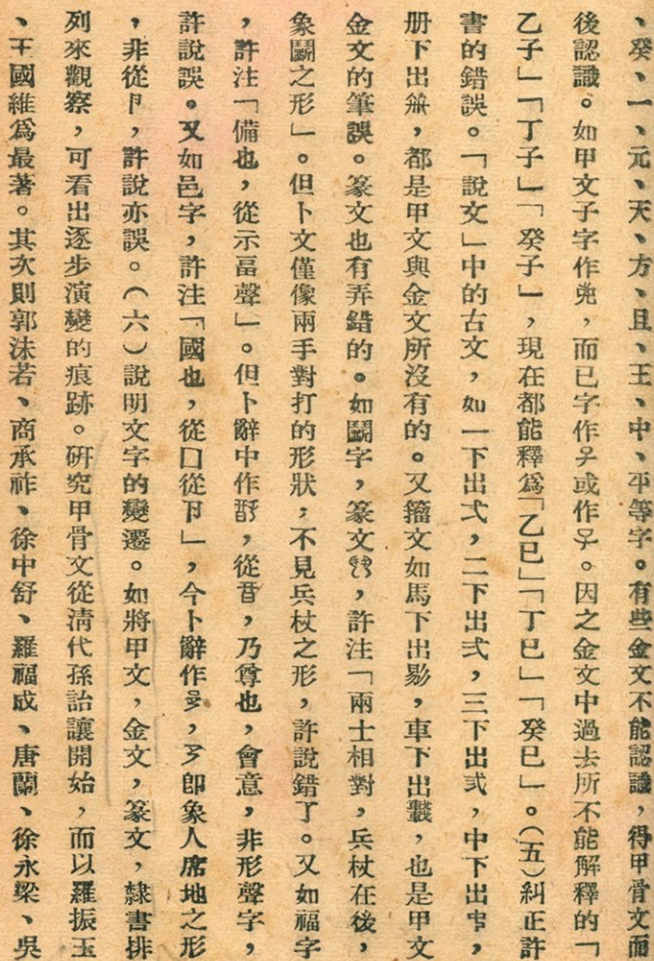 、癸、一、元、天、方、且、王、中、平等字。有些金文不能認識，得甲骨文而
後認識。如甲文子字作，而已字作或作。因之金文中過去所不能解釋的「
乙子」「丁子」「癸子」，現在都能釋爲「乙巳」「丁巳」「癸巳」。（五）糾正許
書的錯誤。「說文」中的古文，如一下出弌，二下出弍，三下出弎，中下出，
册下出，都是甲文與金文所沒有的。又籀文如馬下出，車下出，也是甲文
金文的筆誤。篆文也有弄錯的。如鬭字，篆文，許注「兩士相對，兵杖在後，
象鬭之形」。但卜文僅像兩手對打的形狀，不見兵杖之形，許說錯了。又如福字
，許注「備也，從示畐聲」。但卜辭中作，從，乃尊也，會意，非形聲字，
許說誤。又如邑字，許注「國也，從囗從卪」，今卜辭作，卽象人席地之形
，非從卪，許說亦誤。（六）說明文字的變遷。如將甲文，金文，篆文，隸書排
列來觀察，可看出逐步演變的痕跡。硏究甲骨文從淸代孫詒讓開始，而以羅振玉
、王國維爲最著。其次則郭沫若、商承祚、徐中舒、羅福成、唐蘭、徐永梁、吳